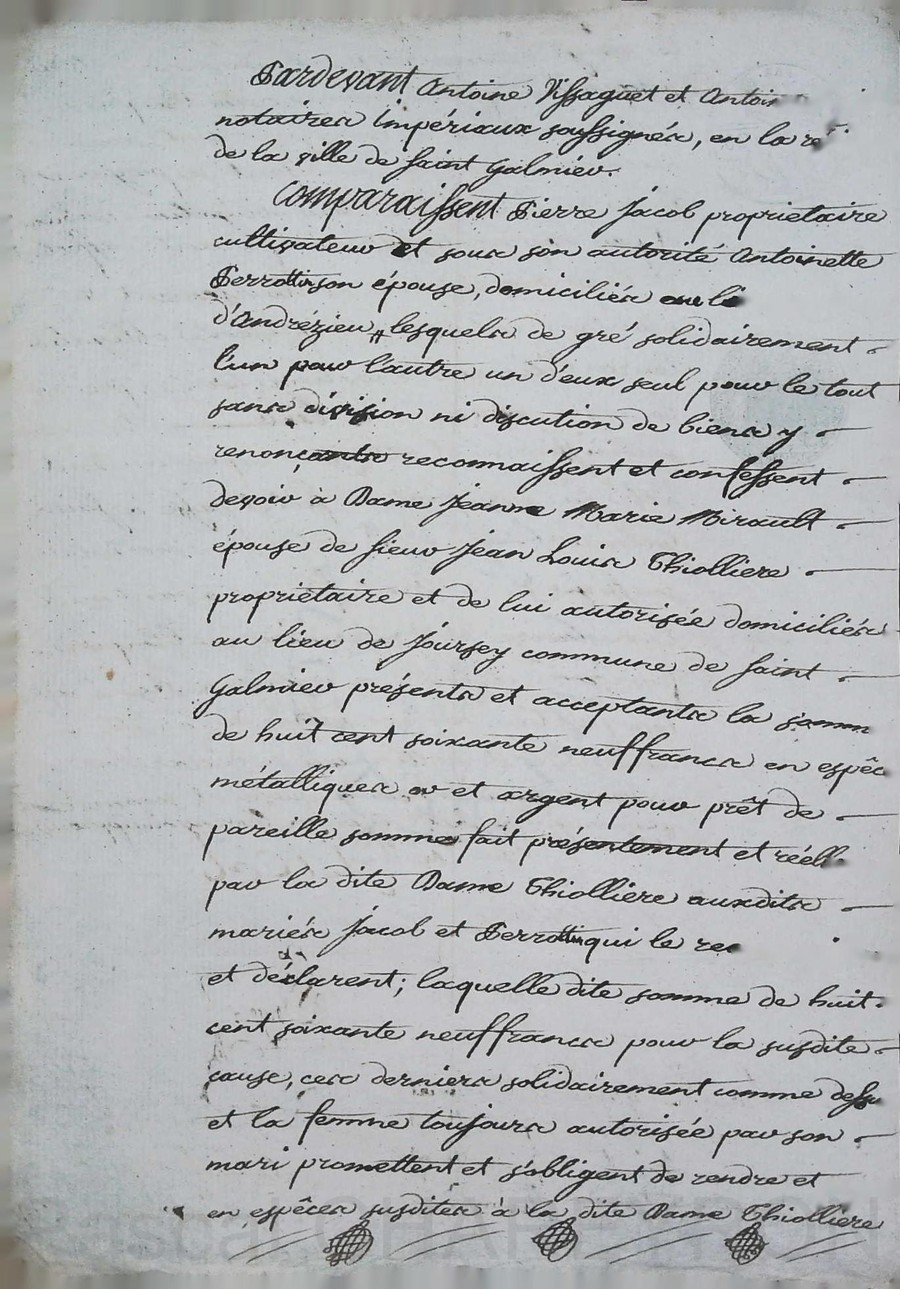 Pardevant Antoine Vissaguet et Antoin
notaires impériaux soussignés, en la re
de la ville de Saint Galmier.
Comparaissent Pierre Jacob proprietaire
cultivateur et sous son autorité Antoinette
Perrottin son épouse, domiciliés au li
d'Andrézieu, lesquels de gré solidairement
l'un pour l'autre un d'eux seul pour le tout
sans division ni discution de biens y
renonçants reconnaissent et confessent
devoir à Dame Jeanne Marie Mirault
épouse de Sieur Jean Louis Thiolliere
propriétaire et de lui autorisée domiciliés
au lieu de Joursey commune de Saint
Galmier présents et acceptants la somm
de huit cent soixante neuf francs en espèc
métalliques or et argent pour prêt de
pareille somme fait présentement et réell
par la dite Dame Thiolliere auxdits
mariés Jacob et Perrottin qui le rec
et déclarent; laquelle dite somme de huit
cent soixante neuf francs pour la susdite
cause, ces derniers solidairement comme dessu
et la femme toujours autorisée par son
mari promettent et s'obligent de rendre et
en espèces susdites à la dite Dame Thiolliere